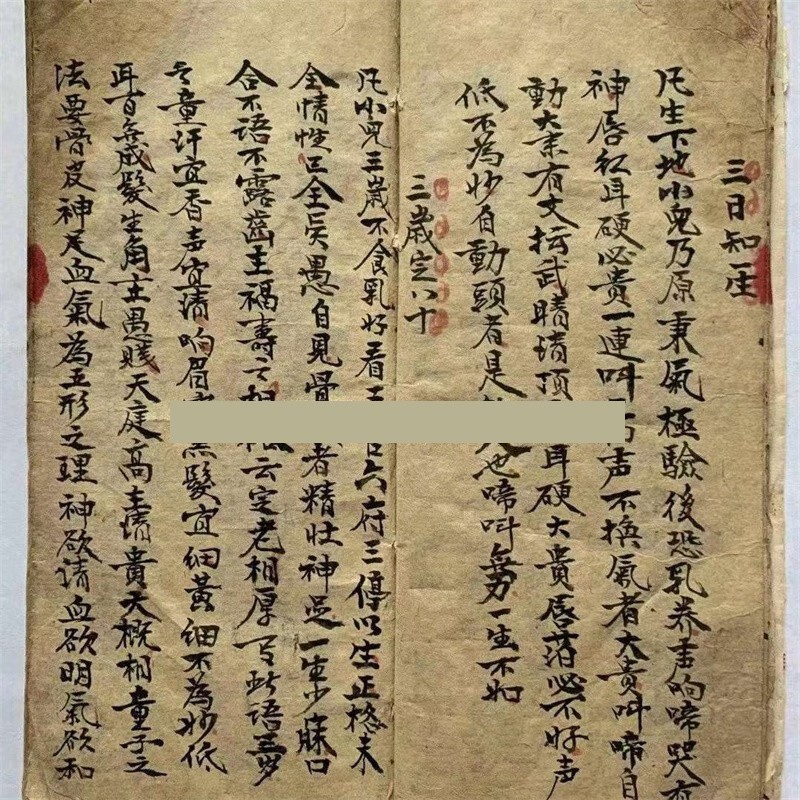 三日知一生
凡生下地小兒乃原秉氣極驗後恐乳养声响啼哭有
神唇紅耳硬必贵一連叫声不换氣者大贵叫啼自
動大業有文坛武睛清顶耳硬大贵唇薄必不好声
低不為妙自動頭者是也啼叫無力一生不如
三歲定八十
凡小兒三歲不食乳好看六府三停以生正格未
全情性已全吳愚自見骨者精壮神足一生少寐口
合不語不露齒主福壽之相云定老相厚下此語三岁
之童汗宜香声宜清响眉黑髮宜细黄细不為妙低
耳百無成髮生角主愚贱天庭高主清贵大概相童子之
法要骨皮神足血氣為五形之理神欲清血欲明氣欲和